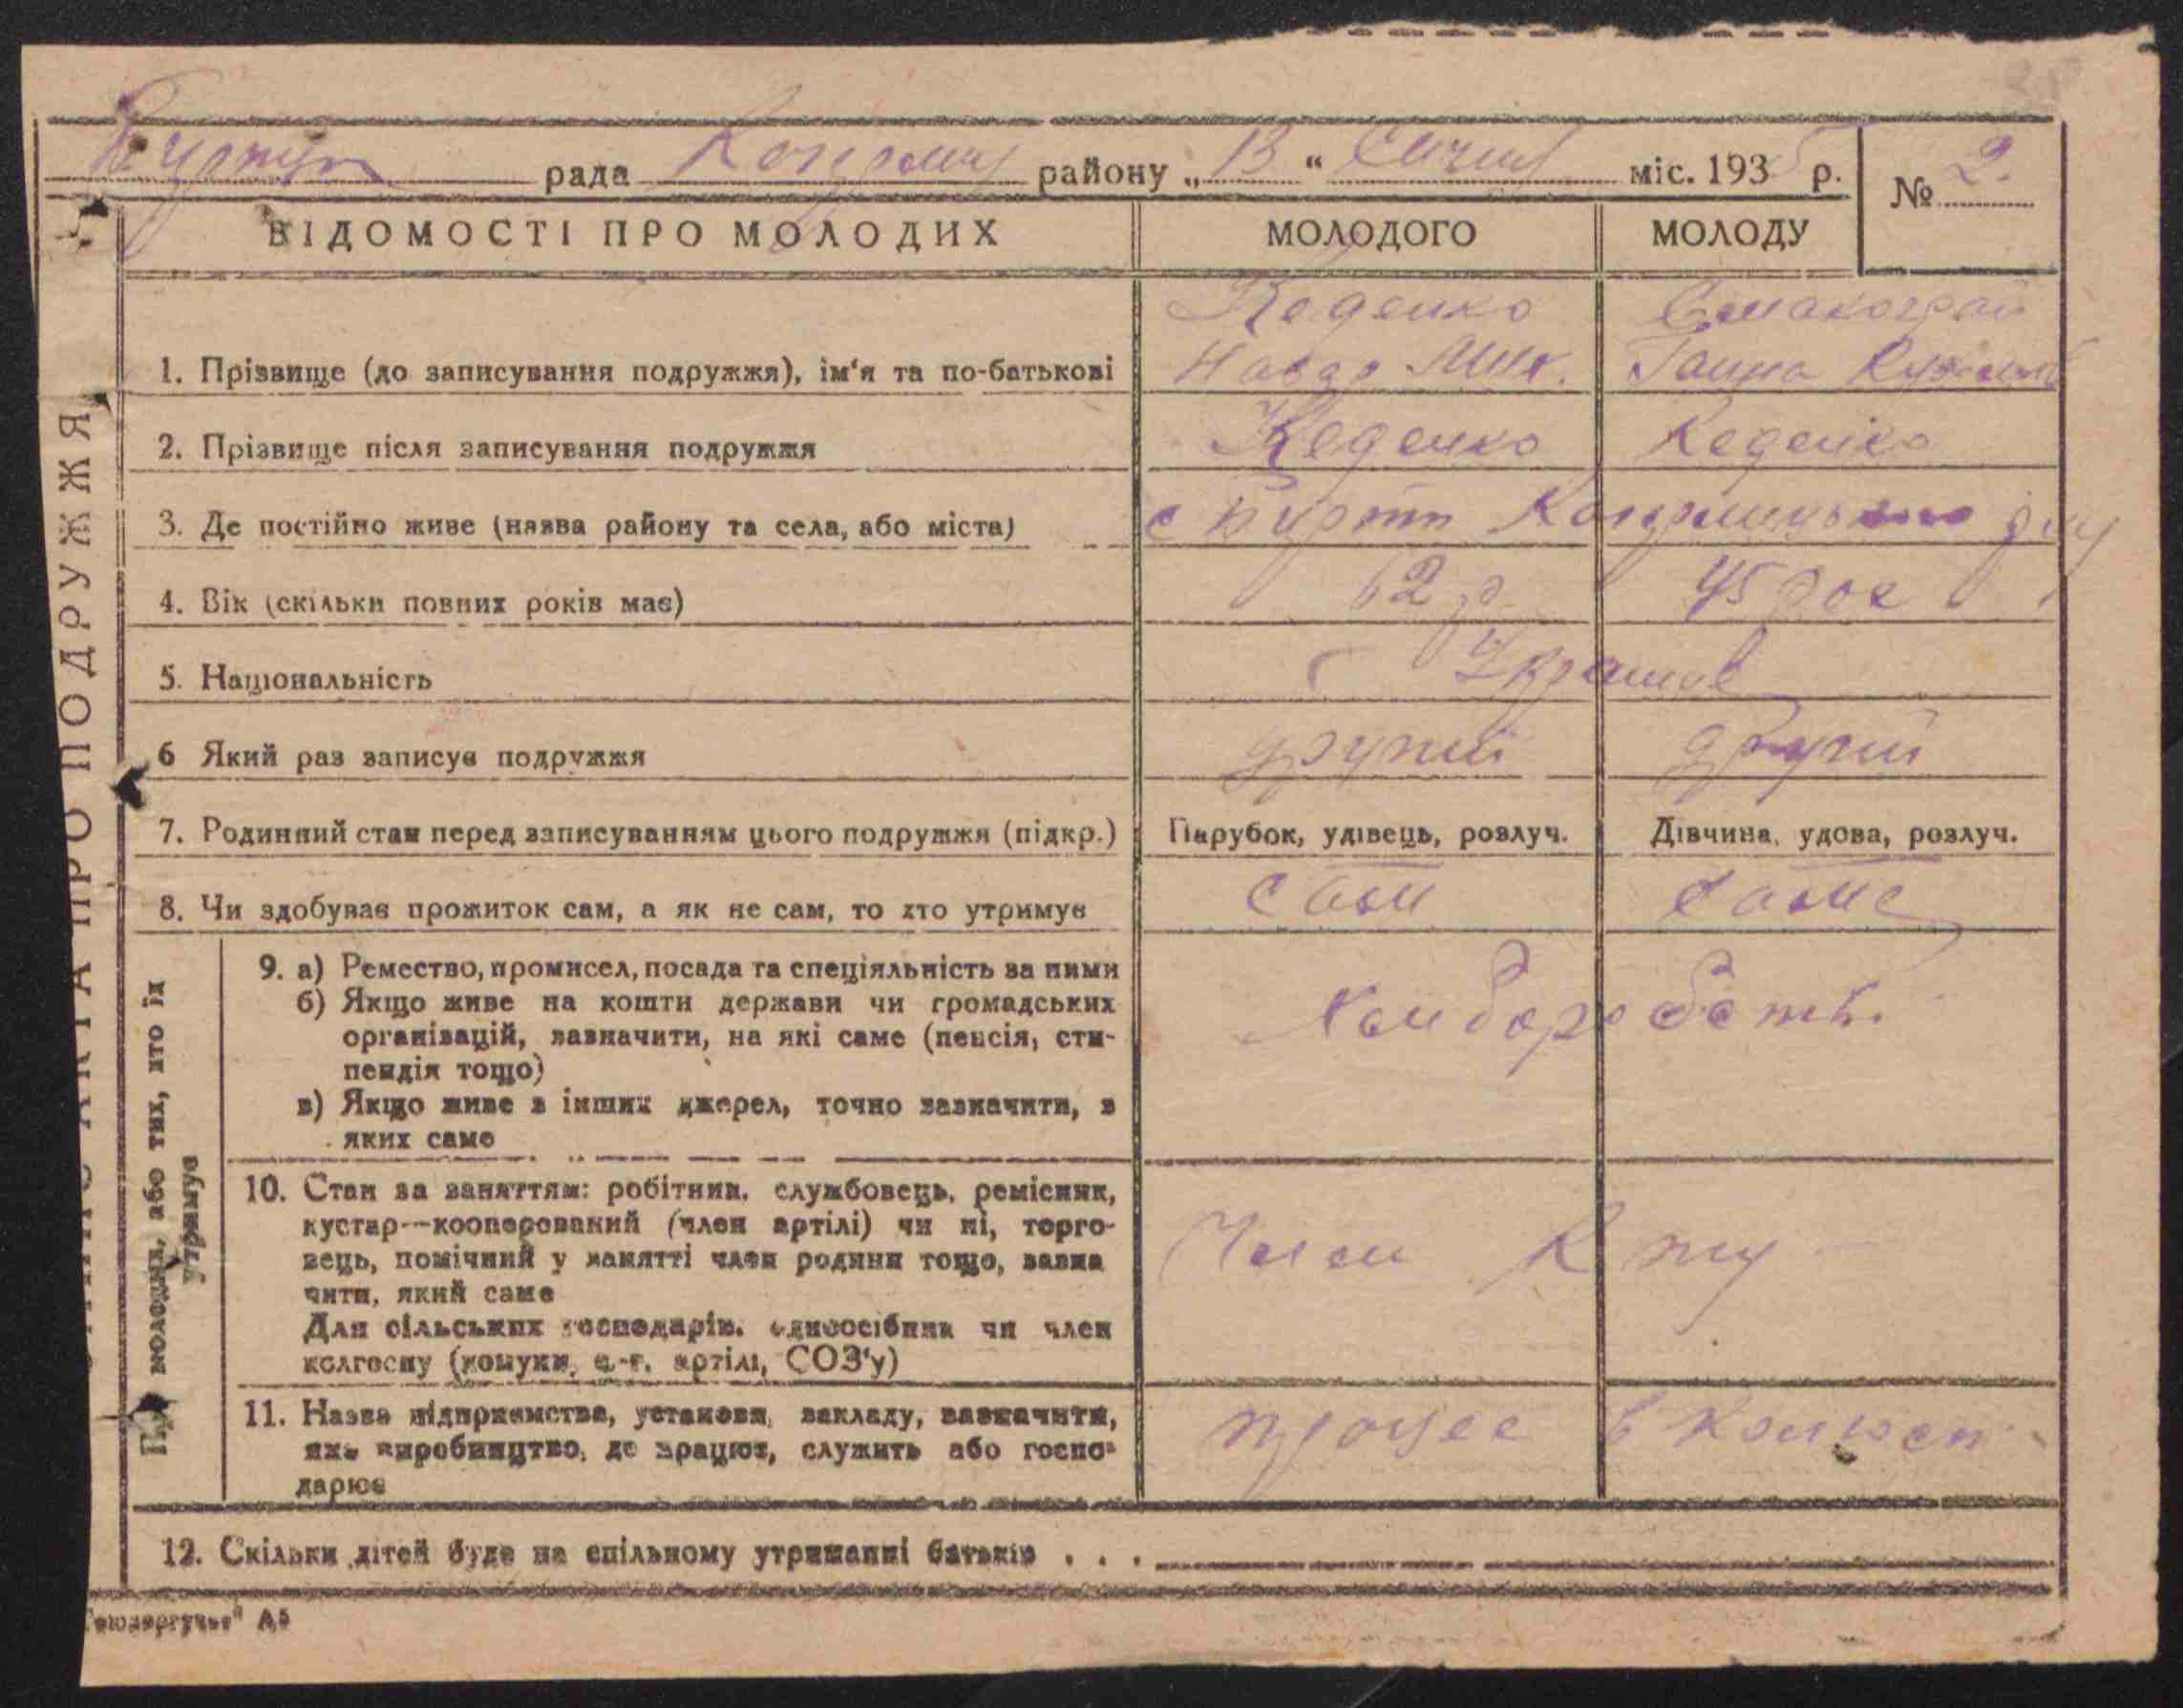 рада району „ 13 “ міс. 1935 р.
№ 2.
ВІДОМОСТІ ПРО МОЛОДИХ МОЛОДОГО МОЛОДУ
ЗАПИС АКТА ПРО ПОДРУЖЖЯ
Кеденко
1. Прізвище (до записування подружжя), ім‘я та по-батькові Назар Ганна
2. Прізвище після записування подружжя Кеденко Кеденко
3. Де постійно живе (назва району та села, або міста) с
4. Вік (скільки повних років має) 62 р. 45 рок
5. Національність
6 Який раз записує подружжя другий другий
7. Родинний стан перед записуванням цього подружжя (підкр.) Парубок, удівець, розлуч. Дівчина, удова, розлуч.
8. Чи здобуває прожиток сам, а як не сам, то хто утримує сам сама
молодих, або тих, хто їх утримує
9. а) Ремество, промисел, посада та спеціяльність за ними
б) Якщо живе на кошти держави чи громадських
організацій, зазначити, на які саме (пенсія, сти-
пендія тощо)
в) Якщо живе з інших джерел, точно зазначити, з
яких саме
Хлібороботв.
10. Стан за заняттям: робітник, службовець, ремісник,
кустар--кооперований (член артілі) чи ні, торго-
вець, помічний у занятті член родини тощо, зазна
чити, який саме
Для сільських господарів. одноосібник чи член
колгоспу (комуни, с.-г. артілі, СОЗ‘у)
Член
11. Назва підприємства, установи, закладу, зазначити,
яке виробництво, де працює, служить або госпо-
дарює
працює в колгосп.
12. Скільки дітей буде на спільному утриманні батьків . . .